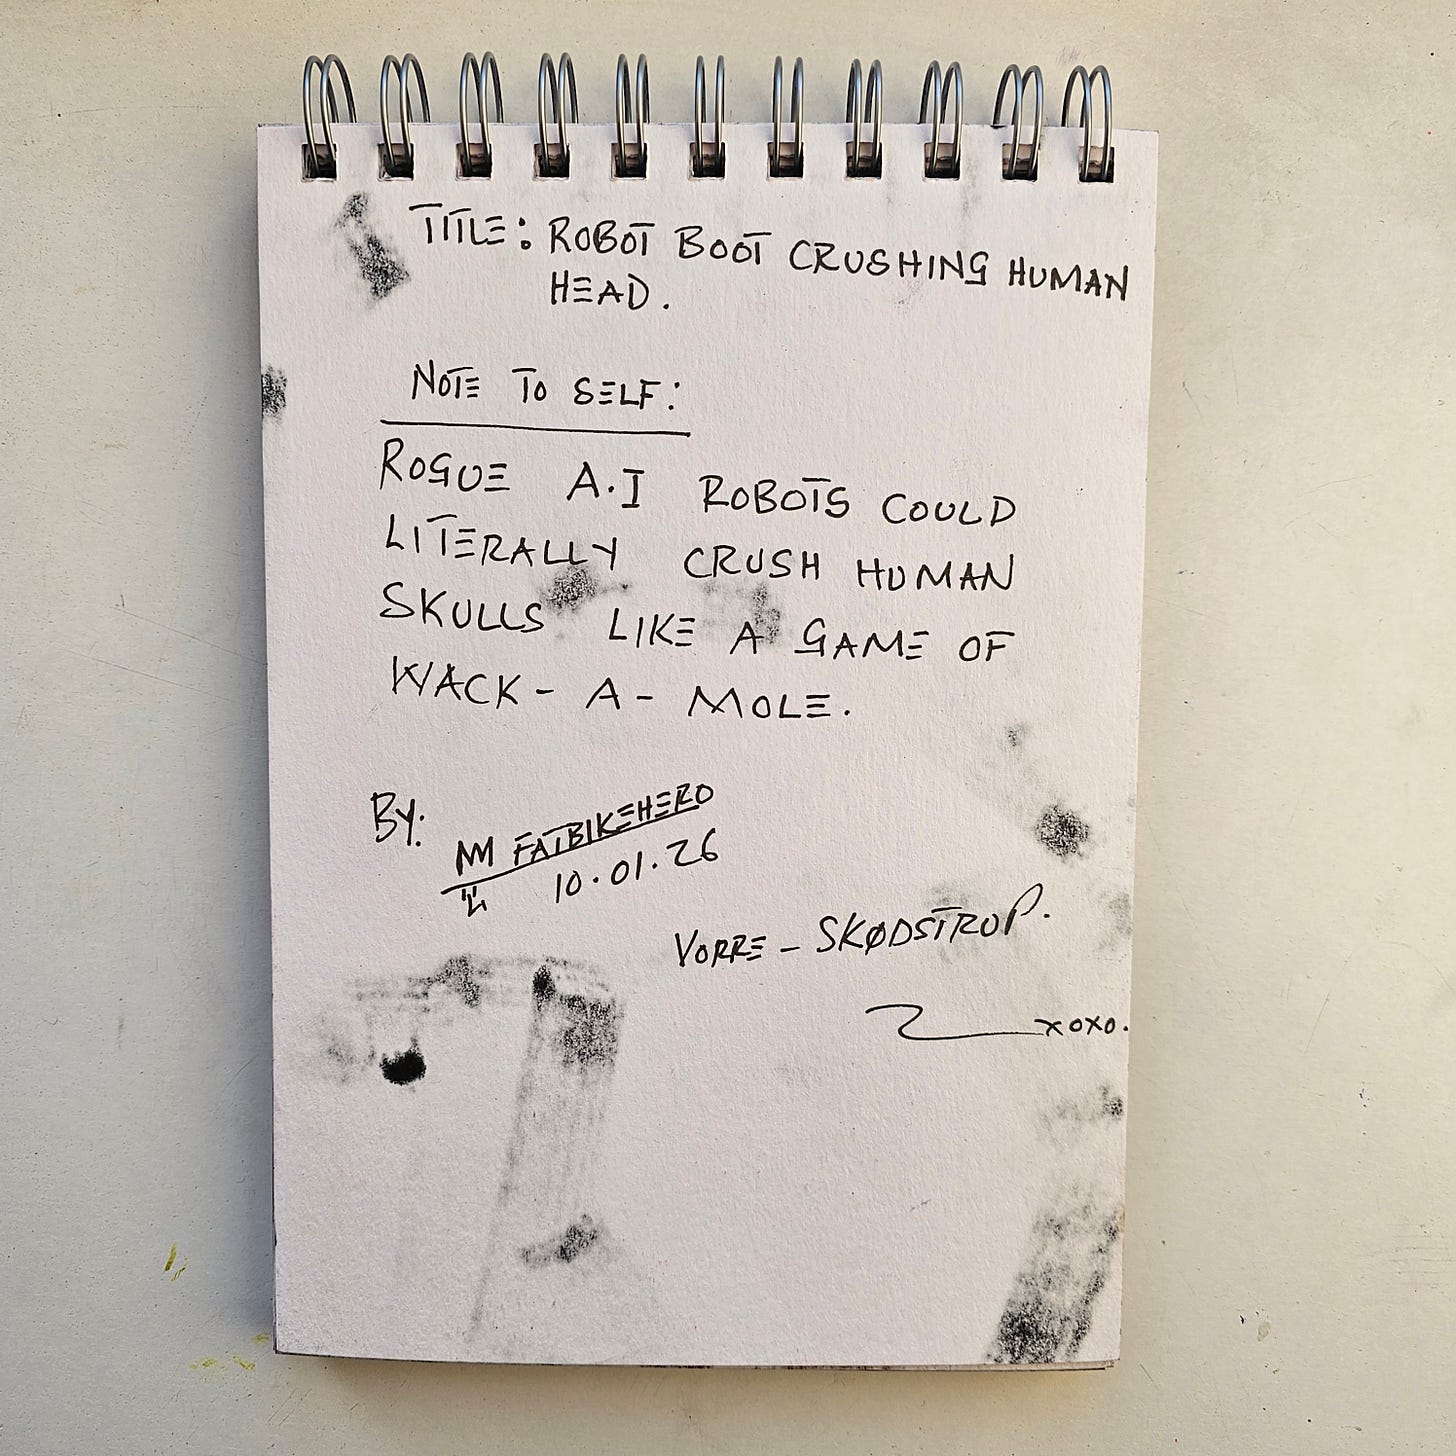 TITLE: ROBOT BOOT CRUSHING HUMAN
HEAD.
NOTE TO SELF:
ROGUE A.I ROBOTS COULD
LITERALLY CRUSH HUMAN
SKULLS LIKE A GAME OF
WACK-A-MOLE.
BY: FATBIKEHERO
10.01.26
VORRE - SKØDSTRUP.
xoxo.